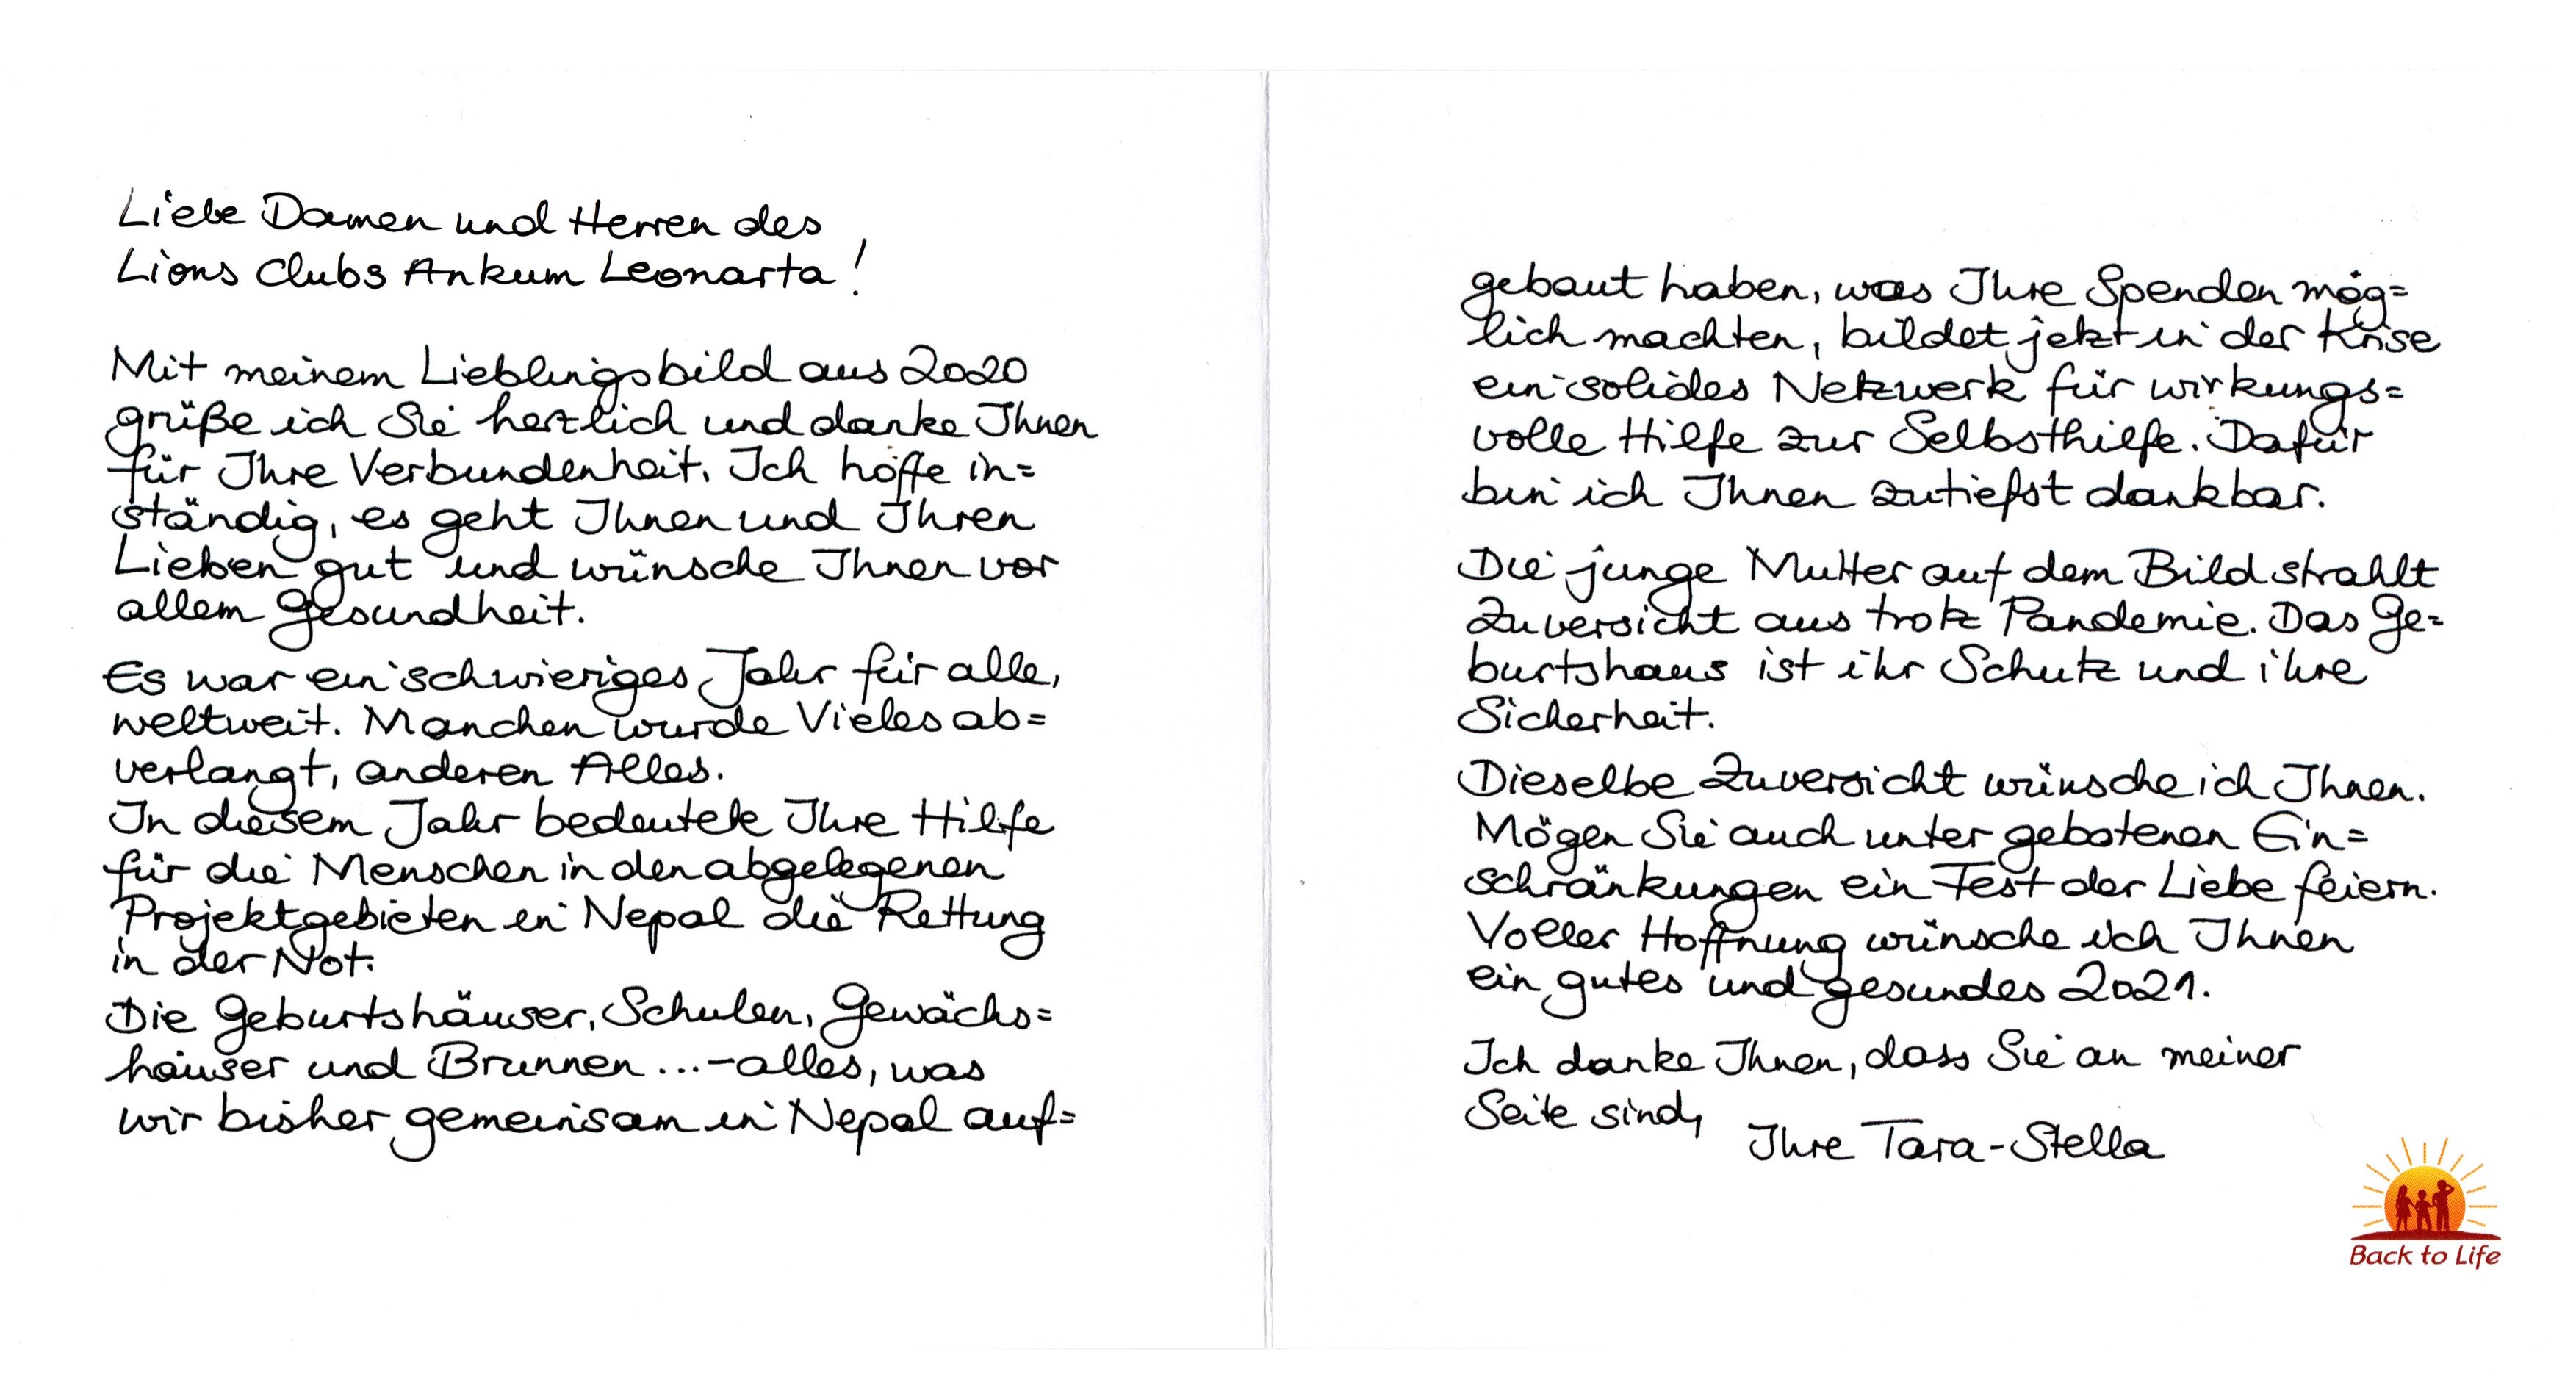 Liebe Damen und Herren des
Lions Clubs Ankum Leonarta!
Mit meinem Lieblingsbild aus 2020
grüße ich Sie herzlich und danke Ihnen
für Ihre Verbundenheit. Ich hoffe in=
ständig, es geht Ihnen und Ihren
Lieben gut und wünsche Ihnen vor
allem Gesundheit.
Es war ein schwieriges Jahr für alle,
weltweit. Manchen wurde Vieles ab=
verlangt, anderen Alles.
In diesem Jahr bedeutete Ihre Hilfe
für die Menschen in den abgelegenen
Projektgebieten in Nepal die Rettung
in der Not.
Die Geburtshäuser, Schulen, Gewächs=
häuser und Brunnen...-alles, was
wir bisher gemeinsam in Nepal auf=
gebaut haben, was Ihre Spenden mög=
lich machten, bildet jetzt in der Krise
ein solides Netzwerk für wirkungs=
volle Hilfe zur Selbsthilfe. Dafür
bin ich Ihnen zutiefst dankbar.
Die junge Mutter auf dem Bild strahlt
Zuversicht aus trotz Pandemie. Das Ge=
burtshaus ist ihr Schutz und ihre
Sicherheit.
Dieselbe Zuversicht wünsche ich Ihnen.
Mögen Sie auch unter gebotenen Ein=
schränkungen ein Fest der Liebe feiern.
Voller Hoffnung wünsche ich Ihnen
ein gutes und gesundes 2021.
Ich danke Ihnen, dass Sie an meiner
Seite sind,
Ihre Tara-Stella
Back to Life